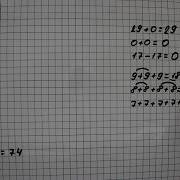 29+0=29
0+0=0
17-17=0
9+9+9=18
8+8+8+8=
7+7+7+7+
= 74